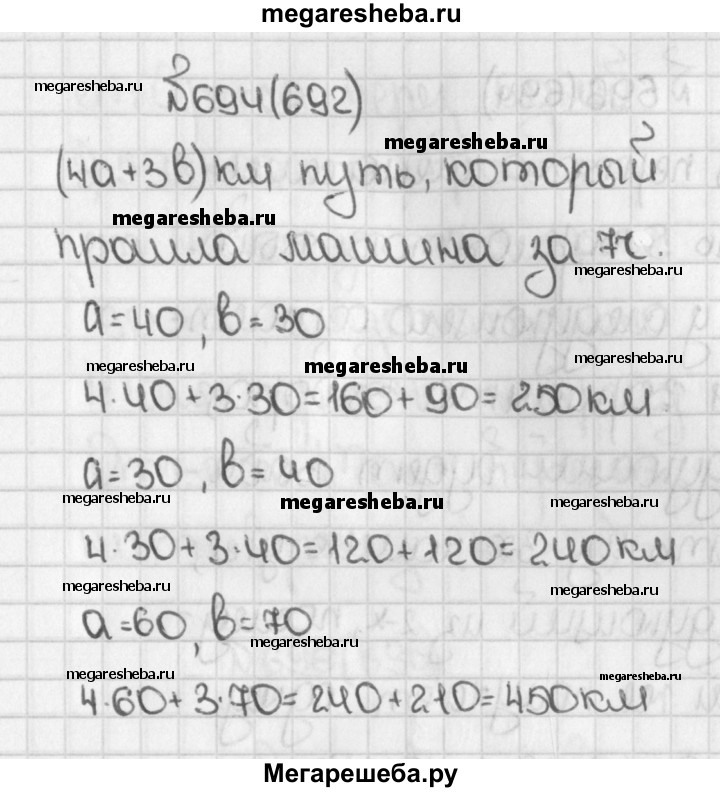 megaresheba.ru
megaresheba.ru
№694(692)
megaresheba.ru
(4а+3в)км путь, который
megaresheba.ru
прошла машина за 7ч.
megaresheba.ru
а=40, в=30
megaresheba.ru megaresheba.ru megaresheba.ru
4·40+3·30=160+90=250км
а=30, в=40
megaresheba.ru megaresheba.ru megaresheba.ru
4·30+3·40=120+120=240км
megaresheba.ru megaresheba.ru
а=60, в=70
megaresheba.ru
megaresheba.ru megaresheba.ru
4·60+3·70=240+210=450км
Мегарешеба.ру